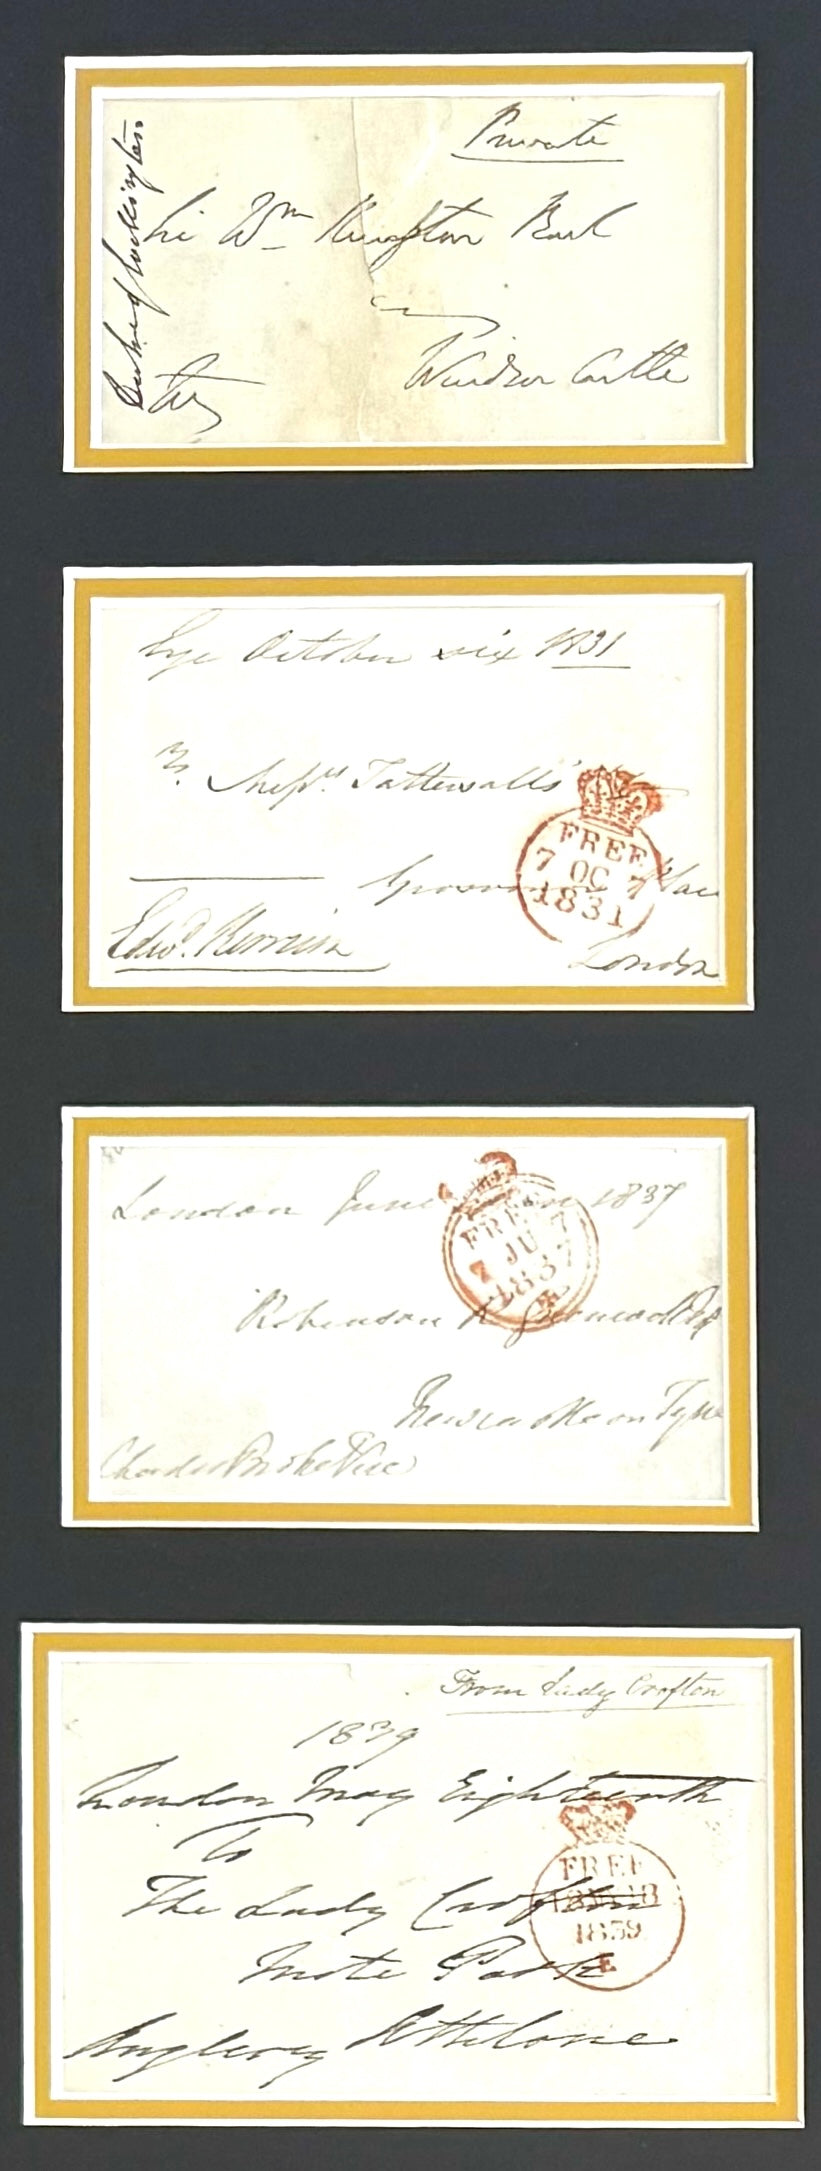 Private
Duke of Wellington
Sir Wm Knighton Bart
Windsor Castle
Eye October six 1831
Messrs Tattersalls'
FREE
7 OC 7
1831
Grosvenor Place
Edwd. Kerrison
London
London June 1837
FREE
7 JU 7
1837
Robinson R. Greenwell Esq
Newcastle on Tyne
Charles Broke Vere
From Lady Crofton
1839
London May Eighteenth
To
FREE
18 MY 18
The Lady Crofton
1839
Mote Park
E
Anglesey Athlone